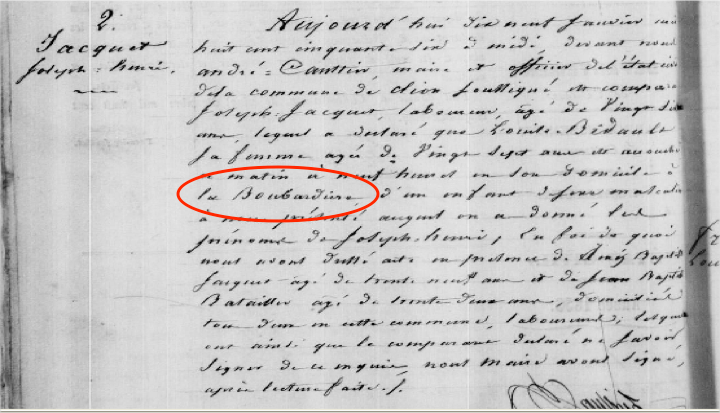 2.
Jacquet
Joseph = henri.
Aujourd'hui dix neuf Janvier mil
huit cent cinquante six à midi, devant nous
andré = Cauttin, maire et officier de l'état civ
de la commune de dion = et comparu
Joseph = Jacquet, laboureur, agé de Vingt six
ans, lequel a déclaré que Louise = Bidault
sa femme agée de Vingt sept ans est accouché
ce matin à neuf heures en son domicile à
la Boubardière, d'un enfant de sexe masculin
à nous présenté auquel on a donné les
prénoms de Joseph = henri, En foi de quoi
nous avons dressé acte en présence de Baptis
Jacquet agé de trente neuf ans et de Jean Baptis
Batailler agé de trente deux ans, domicilié
tous deux en cette commune, laboureurs, lesquels
ont ainsi que le comparant déclaré ne savoir
signer de ce enquis, nous maire avons signé,
après lecture faite ./.